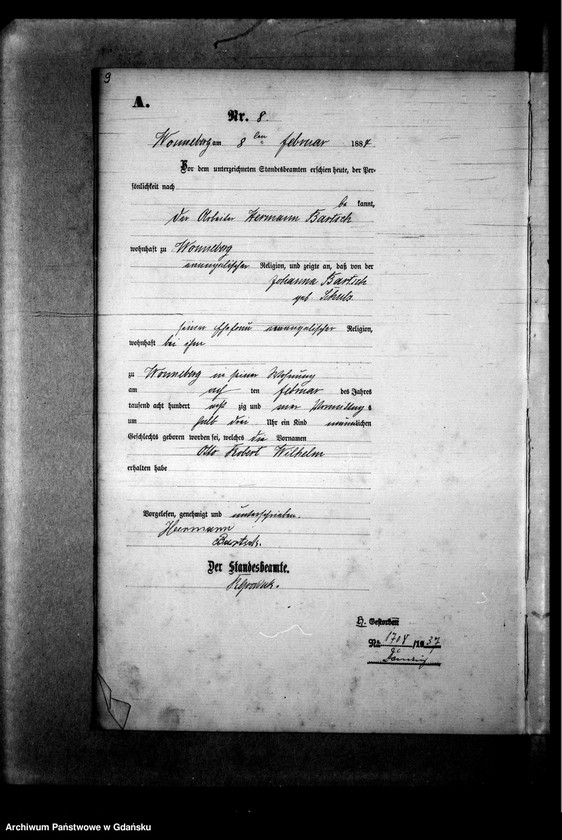 9
A.
Nr. 8.
Wonneberg am 8ten Februar 1884.
Vor dem unterzeichneten Standesbeamten erschien heute, der Per-
sönlichkeit nach
be kannt,
der Arbeiter Hermann Bartsch
wohnhaft zu Wonneberg
evangelischer Religion, und zeigte an, daß von der
Johanna Bartsch
geb. Schulz
seiner Ehefrau evangelischer Religion,
wohnhaft bei ihm
zu Wonneberg in seiner Wohnung
am acht ten Februar des Jahres
tausend acht hundert acht zig und vier Vormittag s
um halb drei Uhr ein Kind männlichen
Geschlechts geboren worden sei, welches die Vornamen
Otto Robert Wilhelm
erhalten habe
Vorgelesen, genehmigt und unterschrieben.
Hermann
Bartsch.
Der Standesbeamte.
H. Gestorben
Nr. 1704/1937
Danzig
Archiwum Państwowe w Gdańsku